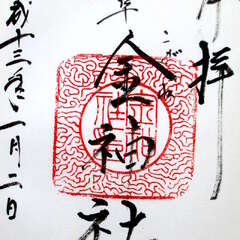 拝
こがね
金神社
成十三年一月二日